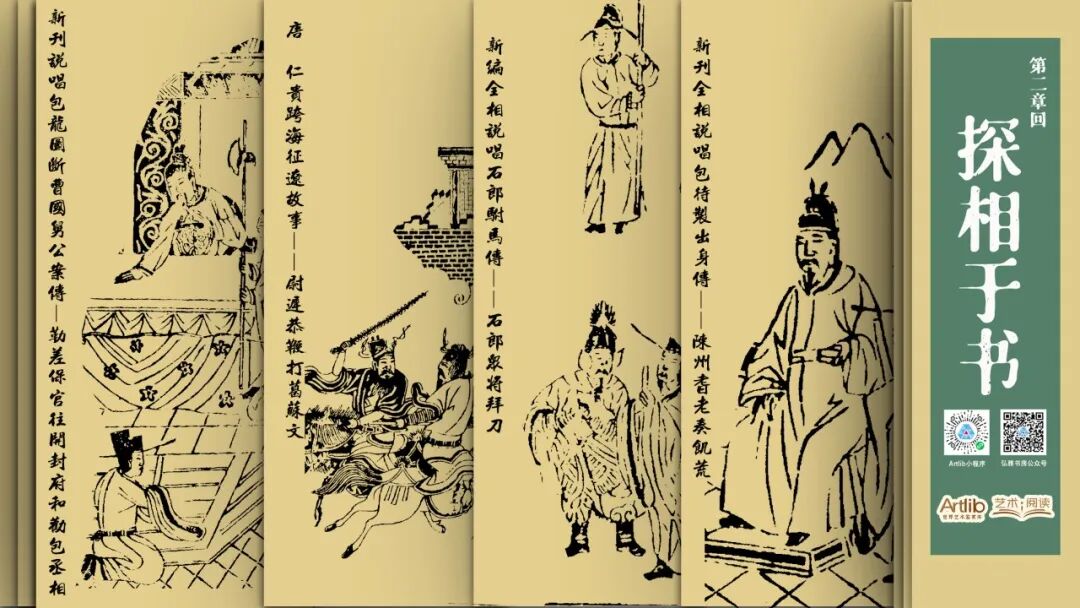 新刊説唱包龍圖断曹國舅公案傳—勒差保官往開封府和勸包丞相
唐 仁貴跨海征遼故事——尉遲恭鞭打葛蘇文
新編全相説唱石郎駙馬傳——石郎衆將拜刀
新刊全相説唱包待製出身傳——陳州耆老奏飢荒
第二章回
探相于书
Artlib小程序
弘雅书房公众号
Artlib
世界艺术鉴赏库
艺术·阅读